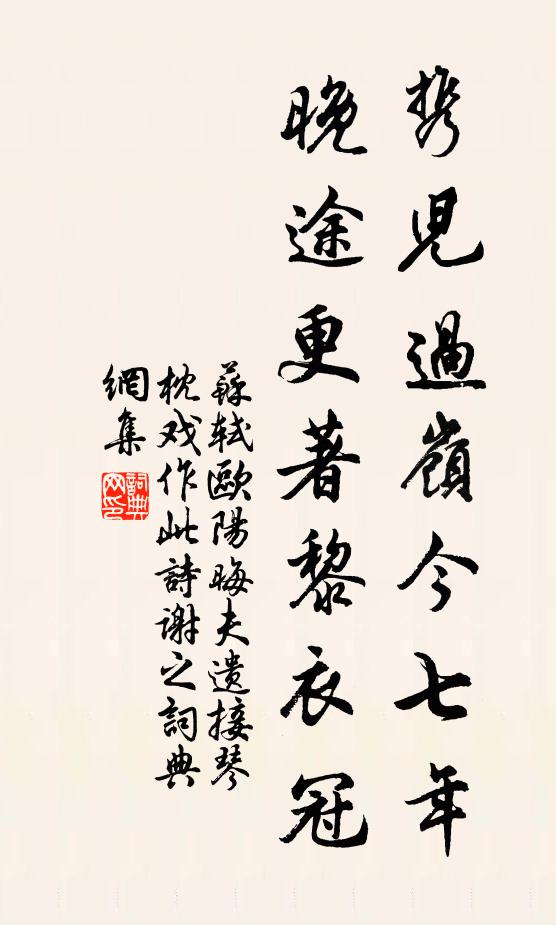 携兒過嶺今七年
晚途更著黎衣冠
蘇軾歐陽晦夫遺接琴
枕戏作此詩谢之詞典
網集
詞典
网印